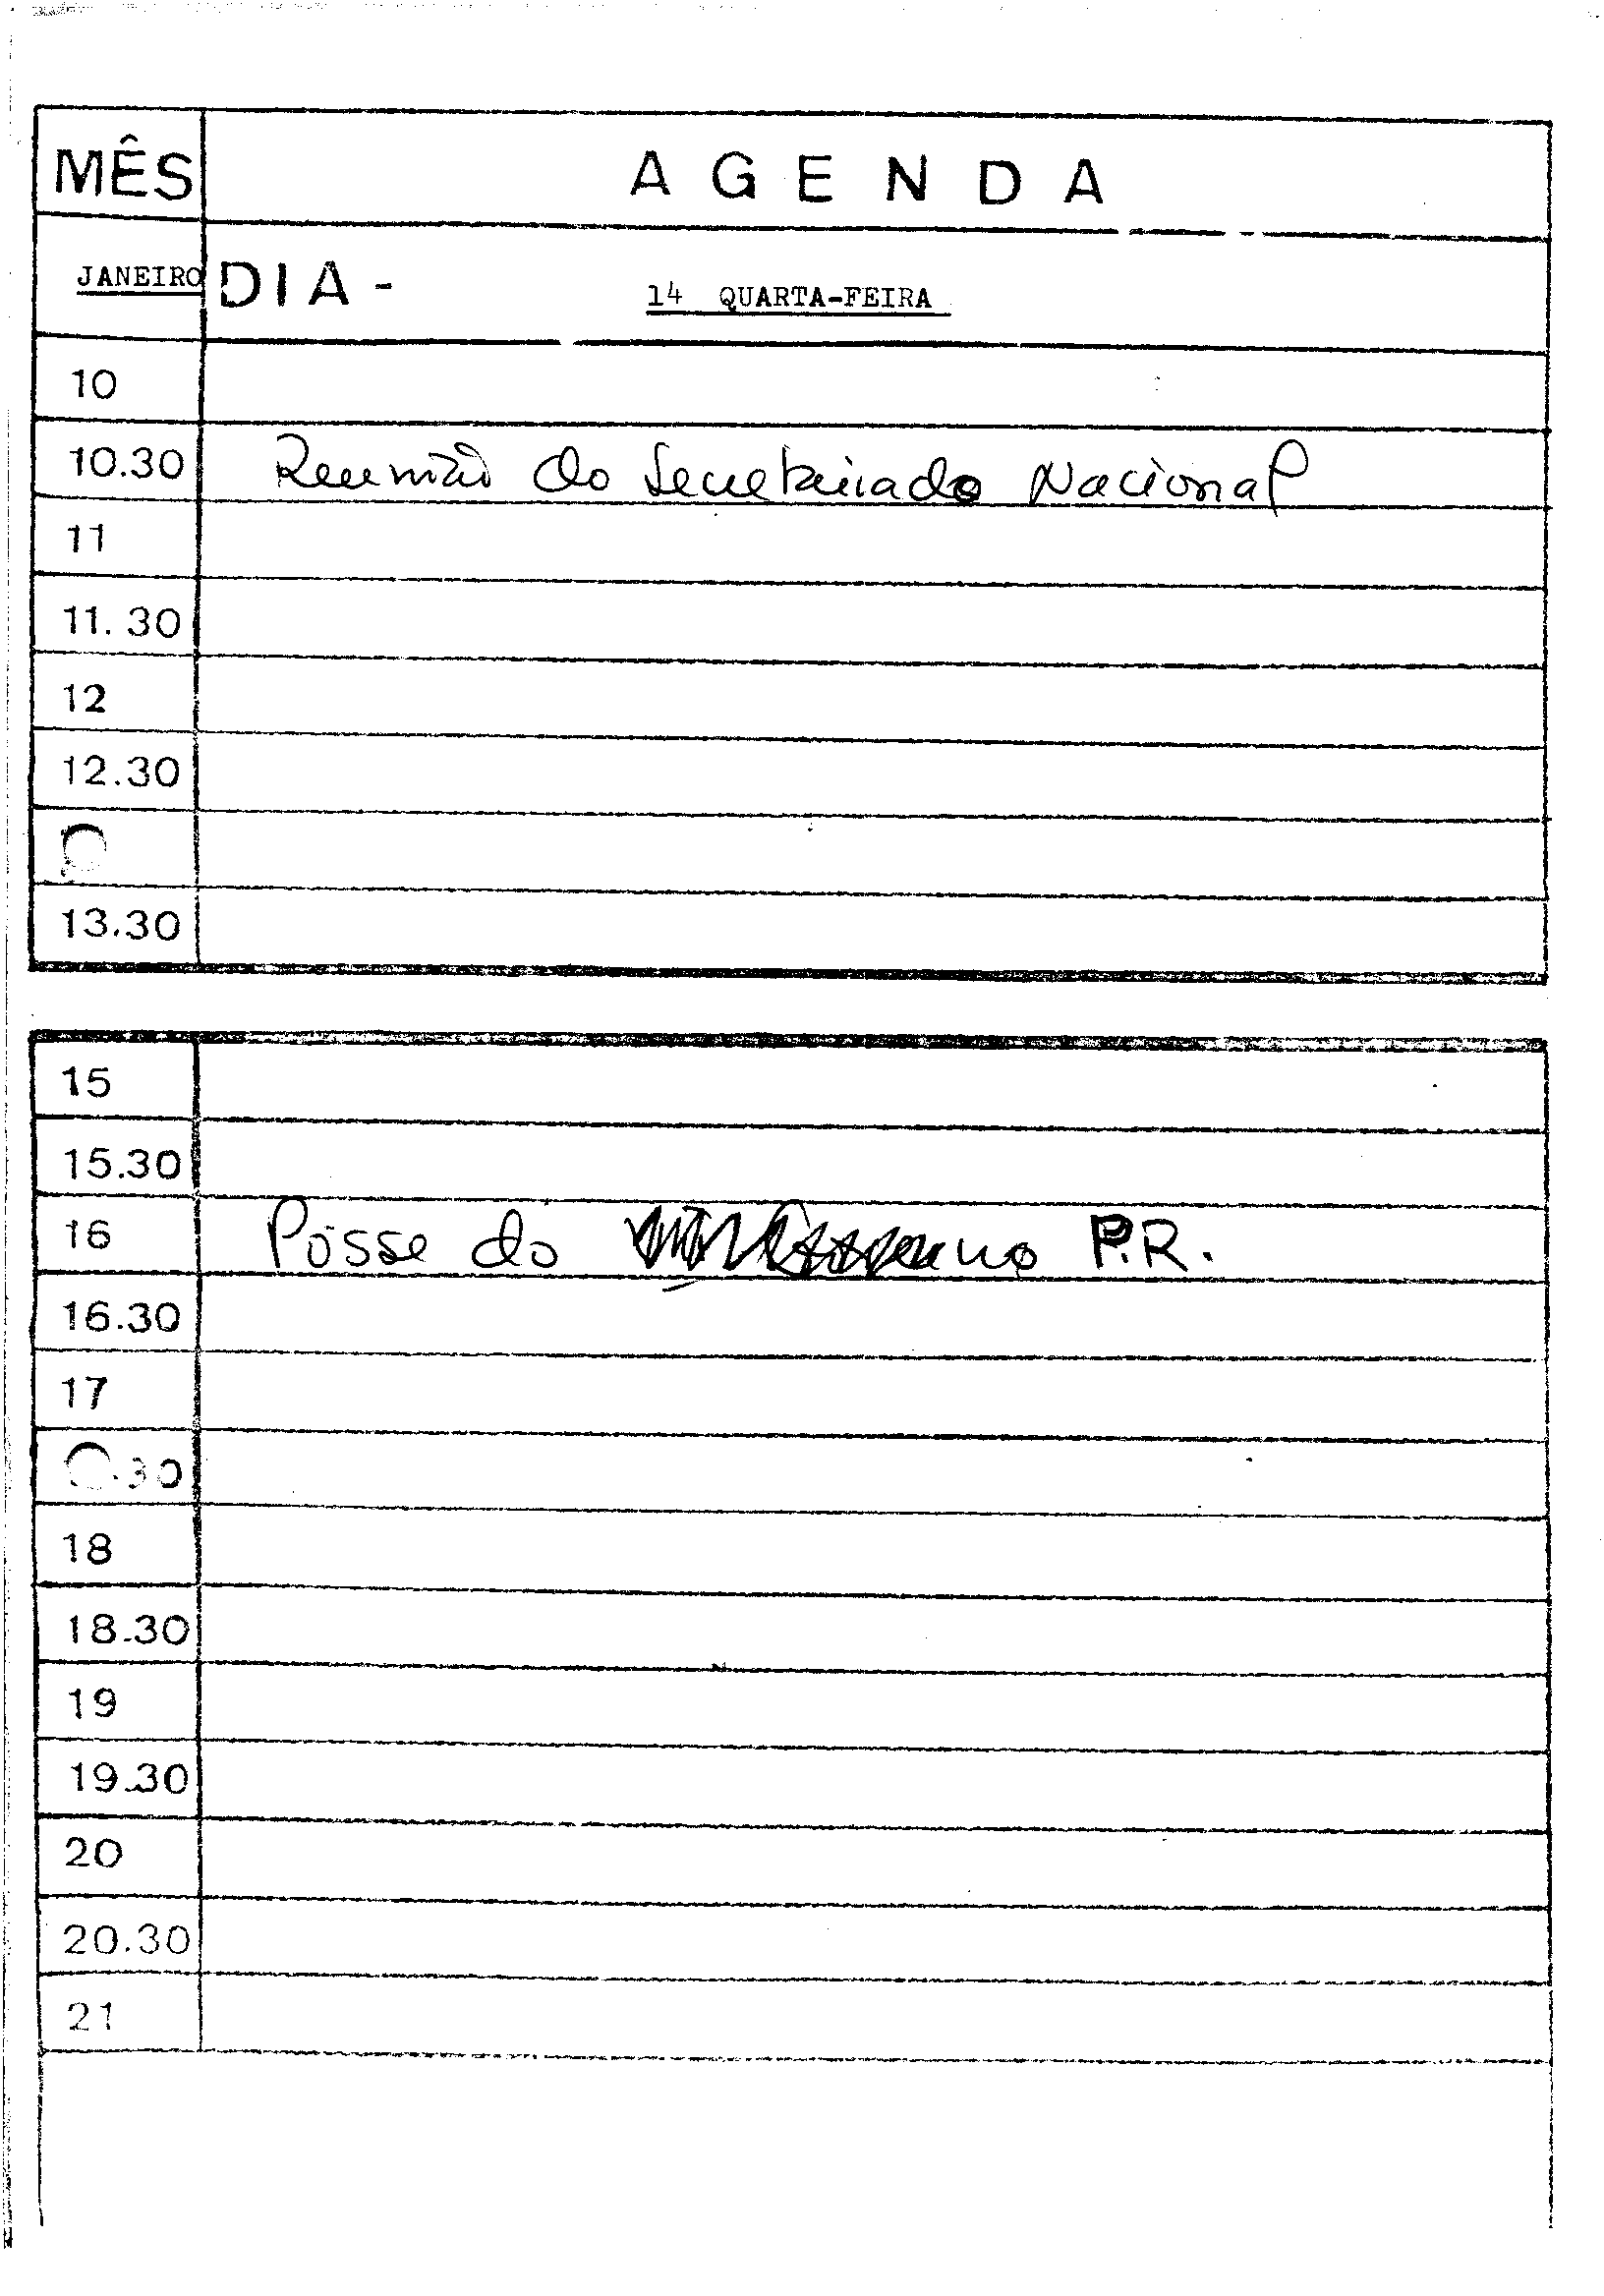 MÊS AGENDA
JANEIRO DIA - 14 QUARTA-FEIRA
10
10.30 Reunião do Secretariado Nacional
11
11.30
12
12.30
13.30
15
15.30
16 Posse do P.R.
16.30
17
.30
18
18.30
19
19.30
20
20.30
21